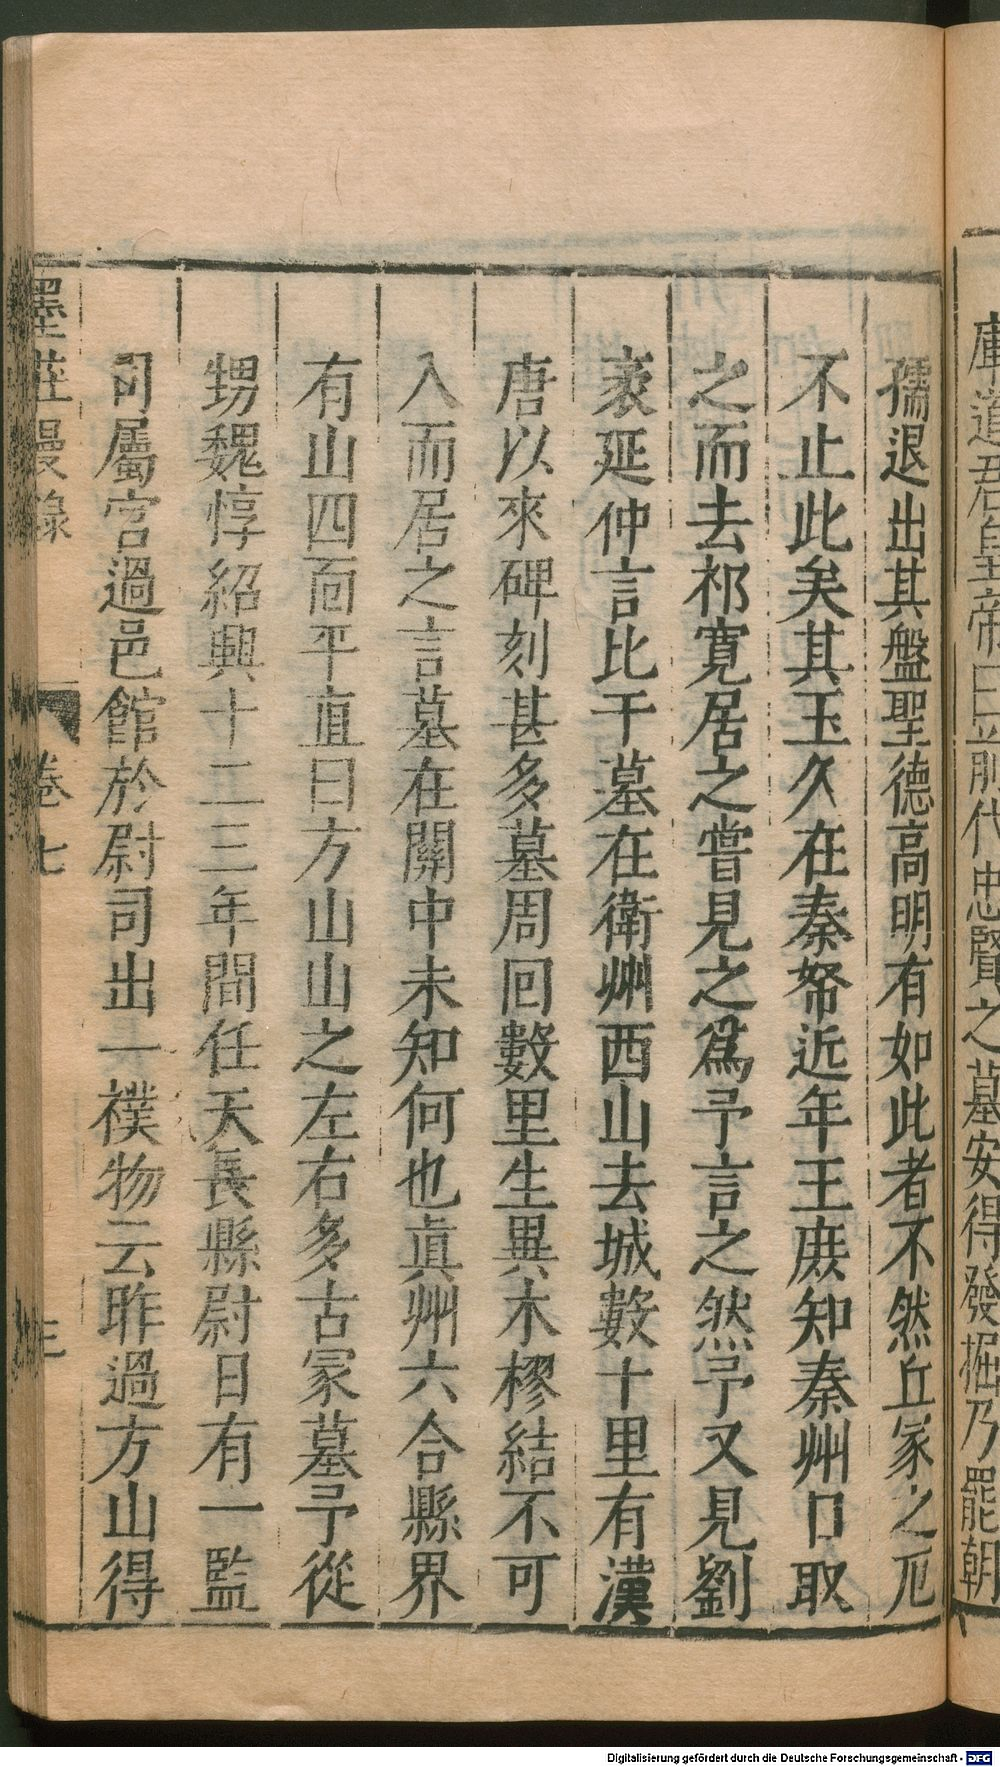 庫道君皇帝曰前代忠賢之墓安得發掘乃罷朝
孺退出其盤聖德高明有如此者不然丘冢之厄
不止此矣其玉久在秦帑近年王庶知秦州日取
之而去祁寬居之嘗見之爲予言之然予又見劉
袤延仲言比干墓在衛州西山去城數十里有漢
唐以來碑刻甚多墓周回數里生異木樛結不可
入而居之言墓在關中未知何也眞州六合縣界
有山四面平直曰方山山之左右多古冢墓予從
甥魏惇紹興十二三年間任天長縣尉日有一監
司屬官過邑館於尉司出一襆物云昨過方山得
墨莊漫錄 卷七 三
Digitalisierung gefördert durch die Deutsche Forschungsgemeinschaft - DFG